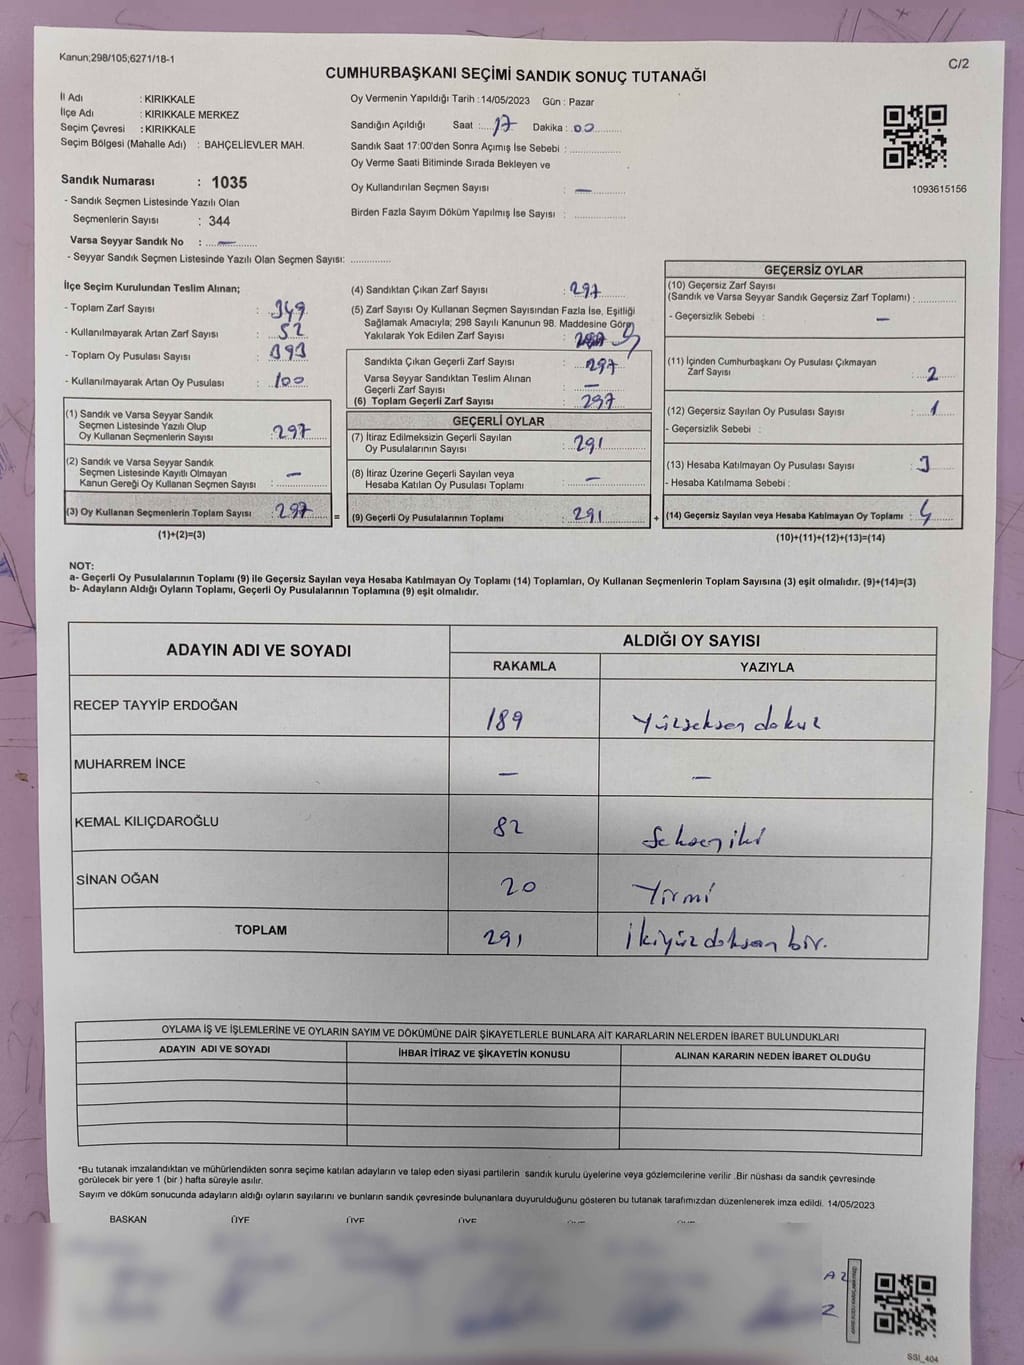 Kanun;298/105;6271/18-1
C/2
CUMHURBAŞKANI SEÇİMİ SANDIK SONUÇ TUTANAĞI
İl Adı : KIRIKKALE
İlçe Adı : KIRIKKALE MERKEZ
Seçim Çevresi : KIRIKKALE
Seçim Bölgesi (Mahalle Adı) : BAHÇELİEVLER MAH.
Sandık Numarası : 1035
- Sandık Seçmen Listesinde Yazılı Olan
Seçmenlerin Sayısı : 344
Varsa Seyyar Sandık No : —
- Seyyar Sandık Seçmen Listesinde Yazılı Olan Seçmen Sayısı: ..............
Oy Vermenin Yapıldığı Tarih : 14/05/2023 Gün : Pazar
Sandığın Açıldığı Saat : 17 Dakika : 00
Sandık Saat 17:00'den Sonra Açımış İse Sebebi : ..............
Oy Verme Saati Bitiminde Sırada Bekleyen ve
Oy Kullandırılan Seçmen Sayısı : —
Birden Fazla Sayım Döküm Yapılmış İse Sayısı : ..............
1093615156
İlçe Seçim Kurulundan Teslim Alınan;
- Toplam Zarf Sayısı : 349
- Kullanılmayarak Artan Zarf Sayısı : 52
- Toplam Oy Pusulası Sayısı : 393
- Kullanılmayarak Artan Oy Pusulası : 100
(1) Sandık ve Varsa Seyyar Sandık
Seçmen Listesinde Yazılı Olup
Oy Kullanan Seçmenlerin Sayısı : 297
(2) Sandık ve Varsa Seyyar Sandık
Seçmen Listesinde Kayıtlı Olmayan
Kanun Gereği Oy Kullanan Seçmen Sayısı : —
(3) Oy Kullanan Seçmenlerin Toplam Sayısı : 297
=
(1)+(2)=(3)
(4) Sandıktan Çıkan Zarf Sayısı : 297
(5) Zarf Sayısı Oy Kullanan Seçmen Sayısından Fazla İse, Eşitliği
Sağlamak Amacıyla; 298 Sayılı Kanunun 98. Maddesine Göre
Yakılarak Yok Edilen Zarf Sayısı :
Sandıkta Çıkan Geçerli Zarf Sayısı : 297
Varsa Seyyar Sandıktan Teslim Alınan
Geçerli Zarf Sayısı : —
(6) Toplam Geçerli Zarf Sayısı : 297
GEÇERLİ OYLAR
(7) İtiraz Edilmeksizin Geçerli Sayılan
Oy Pusulalarının Sayısı : 291
(8) İtiraz Üzerine Geçerli Sayılan veya
Hesaba Katılan Oy Pusulası Toplamı : —
(9) Geçerli Oy Pusulalarının Toplamı : 291
+
GEÇERSİZ OYLAR
(10) Geçersiz Zarf Sayısı
(Sandık ve Varsa Seyyar Sandık Geçersiz Zarf Toplamı) : ..............
- Geçersizlik Sebebi : —
(11) İçinden Cumhurbaşkanı Oy Pusulası Çıkmayan
Zarf Sayısı : 2
(12) Geçersiz Sayılan Oy Pusulası Sayısı : 1
- Geçersizlik Sebebi :
(13) Hesaba Katılmayan Oy Pusulası Sayısı : 3
- Hesaba Katılmama Sebebi :
(14) Geçersiz Sayılan veya Hesaba Katılmayan Oy Toplamı :
(10)+(11)+(12)+(13)=(14)
NOT:
a- Geçerli Oy Pusulalarının Toplamı (9) ile Geçersiz Sayılan veya Hesaba Katılmayan Oy Toplamı (14) Toplamları, Oy Kullanan Seçmenlerin Toplam Sayısına (3) eşit olmalıdır. (9)+(14)=(3)
b- Adayların Aldığı Oyların Toplamı, Geçerli Oy Pusulalarının Toplamına (9) eşit olmalıdır.
ADAYIN ADI VE SOYADI
ALDIĞI OY SAYISI
RAKAMLA YAZIYLA
RECEP TAYYİP ERDOĞAN 189 Yüzseksen dokuz
MUHARREM İNCE — —
KEMAL KILIÇDAROĞLU 82 Seksen iki
SİNAN OĞAN 20 Yirmi
TOPLAM 291 İkiyüz doksan bir.
OYLAMA İŞ VE İŞLEMLERİNE VE OYLARIN SAYIM VE DÖKÜMÜNE DAİR ŞİKAYETLERLE BUNLARA AİT KARARLARIN NELERDEN İBARET BULUNDUKLARI
ADAYIN ADI VE SOYADI İHBAR İTİRAZ VE ŞİKAYETİN KONUSU ALINAN KARARIN NEDEN İBARET OLDUĞU
*Bu tutanak imzalandıktan ve mühürlendikten sonra seçime katılan adayların ve talep eden siyasi partilerin sandık kurulu üyelerine veya gözlemcilerine verilir .Bir nüshası da sandık çevresinde
görülecek bir yere 1 (bir ) hafta süreyle asılır.
Sayım ve döküm sonucunda adayların aldığı oyların sayılarını ve bunların sandık çevresinde bulunanlara duyurulduğunu gösteren bu tutanak tarafımızdan düzenlenerek imza edildi. 14/05/2023
BAŞKAN ÜYE ÜYE ÜYE
SSI_404